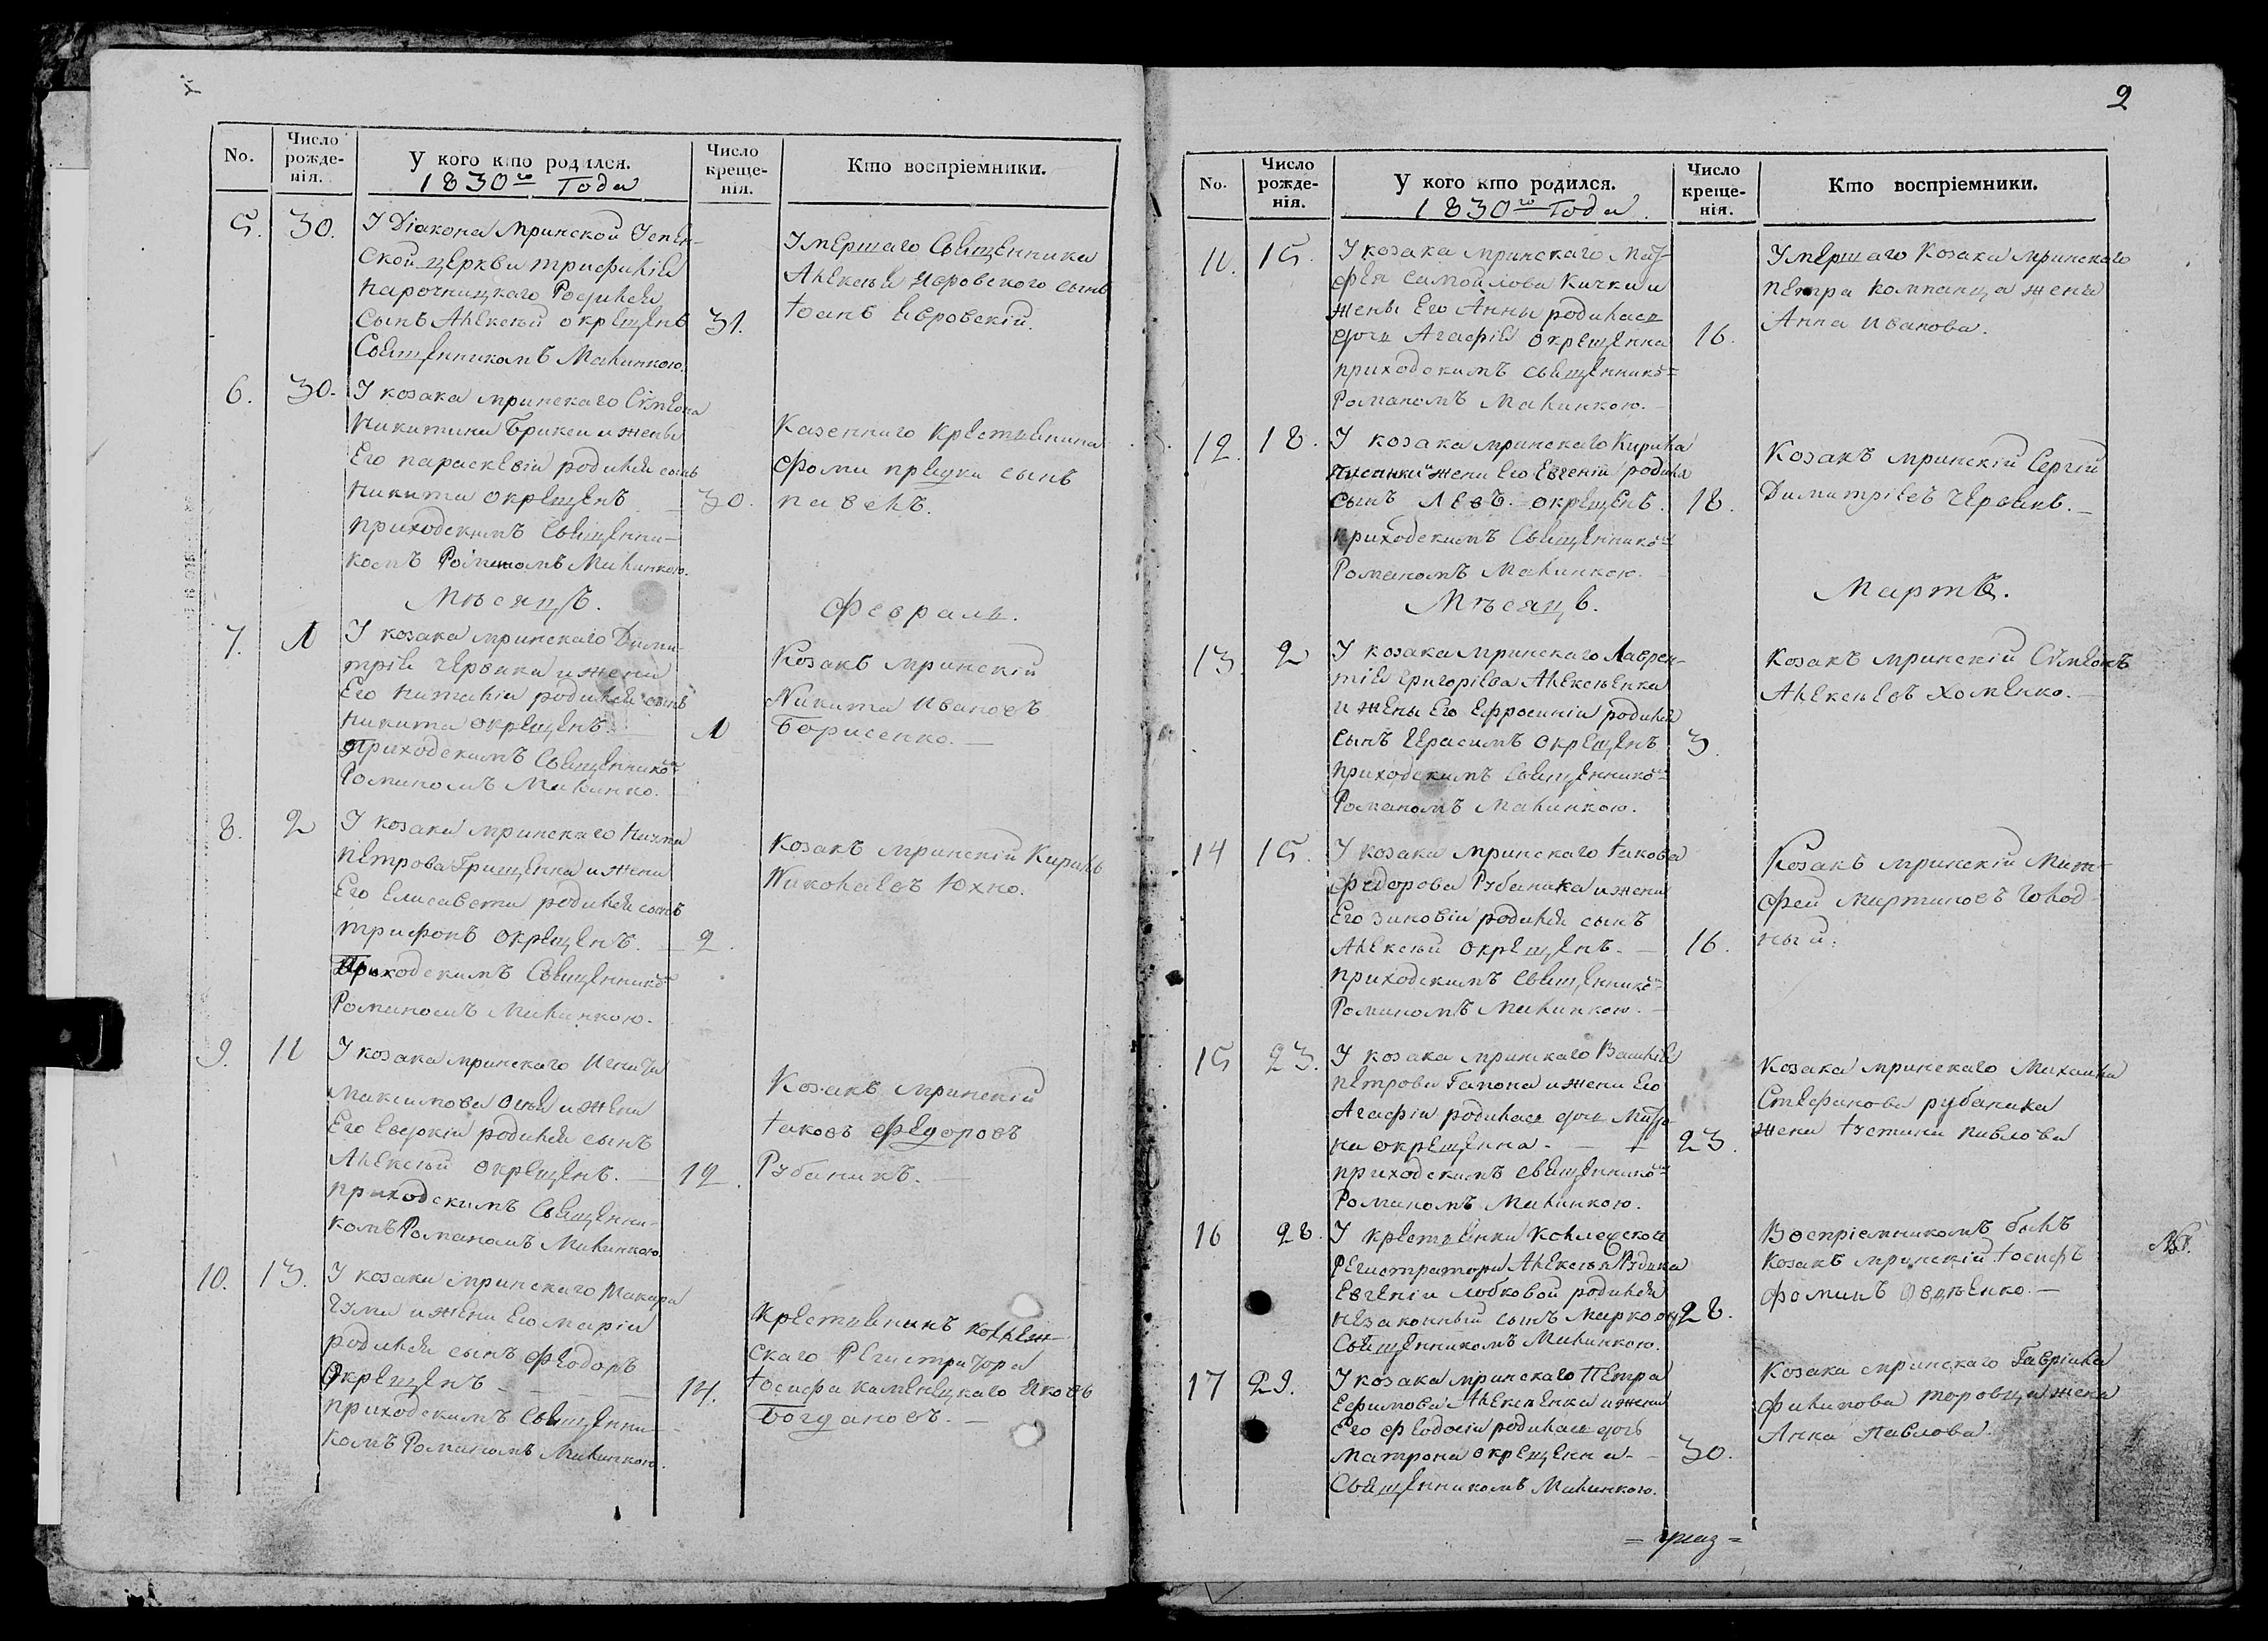 No.
Число рожде-нія.
У кого кто родился.
1830го Года
Число креще-нія.
Кто воспріемники.
5. 30. У Діакона Мринской Успен-
ской церкви Трифилія
Нарочницкаго родился
сынъ Алексѣй окрещенъ 31.
Священникомъ Малинкою.
Умершаго Священника
Алексѣя Яворовского сынъ
Іоанъ Яворовскій.
6. 30. У козака мринскаго Сѵмеона
Никитина Брикси и жены
Его Параскевіи родился сынъ
Никита окрещенъ 30.
приходскимъ Священни-
комъ Романомъ Малинкою.
Казенного крестьянина
Фомы сынъ
Павелъ.
Мѣсяцъ.
Февраль.
7. 1 У козака мринскаго Дими-
трія Червяка и жены
Его Наталіи родился сынъ
Никита окрещенъ. 1
приходскимъ Священнико
Романомъ Малинко.
Козакъ мринскій
Никита Ивановъ
Борисенко.
8. 2 У козака мринскаго Наума
Петрова Грищенка и жены
Его Елисаветы родился сынъ
Трифонъ окрещенъ. 2.
Приходскимъ Священнико
Романомъ Малинкою.
Козакъ мринскій Кирилъ
Николаевъ Юхно.
9. 11 У козака мринскаго Игната
Максимова и жены
Его Евдокіи родился сынъ
Алексѣй окрещенъ. 12.
приходскимъ Священни-
комъ Романомъ Малинкою.
Козакъ мринскій
Іаковъ Федоровъ
Рубаникъ.
10. 13. У козака мринскаго Макара
Чума и жены Его Маріи
родился сынъ Феодоръ
Окрещенъ 14.
приходскимъ Священни-
комъ Романомъ Малинкою.
Крестьянинъ коллеж-
скаго Регистратора
Іосифа Каменецкаго Яковъ
Богдановъ.
2
No.
Число рожде-нія.
У кого кто родился.
1830го Года
Число креще-нія.
Кто воспріемники.
11. 15. У козака мринскаго Мат-
фея Самойлова Кички и
жены Его Анны родилась
дочь Агафія окрещенна 16.
приходскимъ священнико
Романомъ Малинкою.
Умершаго Козака мринскаго
Петра Компанца жена
Анна Иванова.
12. 18. У козака мринскаго Кирила
жены Его Евгеніи родил
сынъ Левъ. окрещенъ. 18.
приходскимъ Священнико
Романомъ Малинкою.
Козакъ мринскій Сергій
Димитріевъ Червякъ.
Мѣсяцъ.
Мартъ.
13 2 У козака мринскаго Лаврен-
тія Григоріева Алексѣенка
и жены Его Ефросиніи родился
сынъ Герасимъ окрещенъ 3.
приходскимъ священнико
Романомъ Малинкою.
Козакъ мринскій Сѵмеонъ
Алексѣевъ Хоменко.
14 15. У козака мринскаго Іакова
Федорова Рубаника и жены
Его Зиновіи родился сынъ
Алексѣй окрещенъ. 16.
приходскимъ священнико
Романомъ Малинкою.
Козакъ мринскій Мат-
фей Мартиновъ Голод-
ный.
15 23. У козака мринскаго Василія
Петрова Гапона и жены Его
Агафіи родилась дочь Матро
на окрещенна. 23.
приходскимъ священнико
Романомъ Малинкою.
Козака мринскаго Михаила
Стефанова Рубаника
жена Іустина Павлова
16 28. У крестьянки Коллежского
Регистратора Алексѣя Рудика
Евгеніи Лобковой родился
незаконный сынъ Марко ок 28.
Священникомъ Малинкою.
Воспріемникомъ былъ
Козакъ мринскій Іосифъ
Фоминъ Овдѣенко.
17 29. У козака мринскаго Петра
Ефимова Алексѣенка и жены
Его Феодосіи родилась дочь
Матрона окрещенна. 30.
Священникомъ Малинкою.
Козака мринскаго Гавріила
Филипова жена
Анна Павлова.